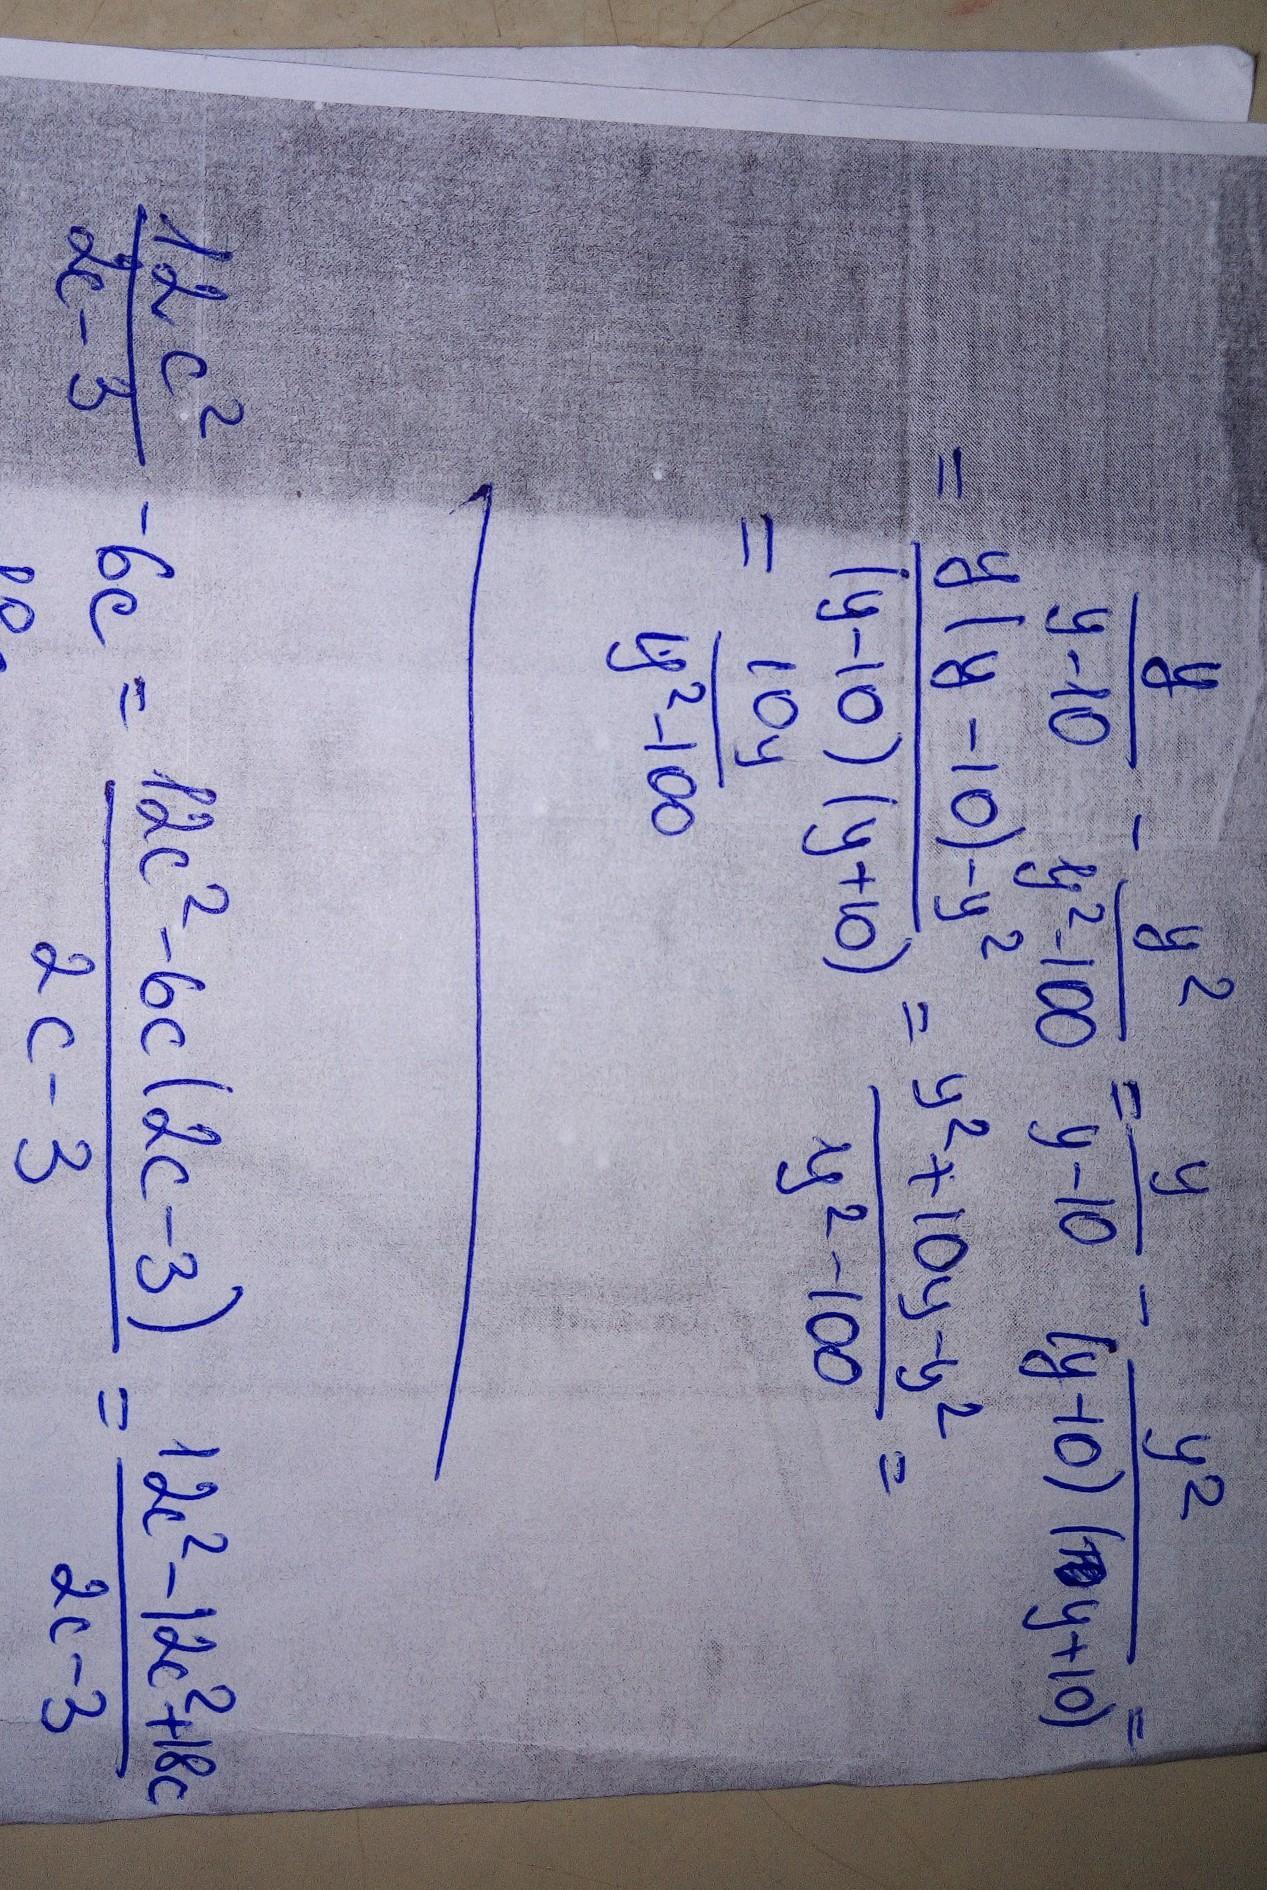 y/(y-10) - y²/(y²-100) = y/(y-10) - y²/((y-10)(y+10)) =
= (y(y-10)-y²)/((y-10)(y+10)) = (y²+10y-y²)/(y²-100) =
= 10y/(y²-100)
12c²/(2c-3) - 6c = (12c²-6c(2c-3))/(2c-3) = (12c²-12c²+18c)/(2c-3)